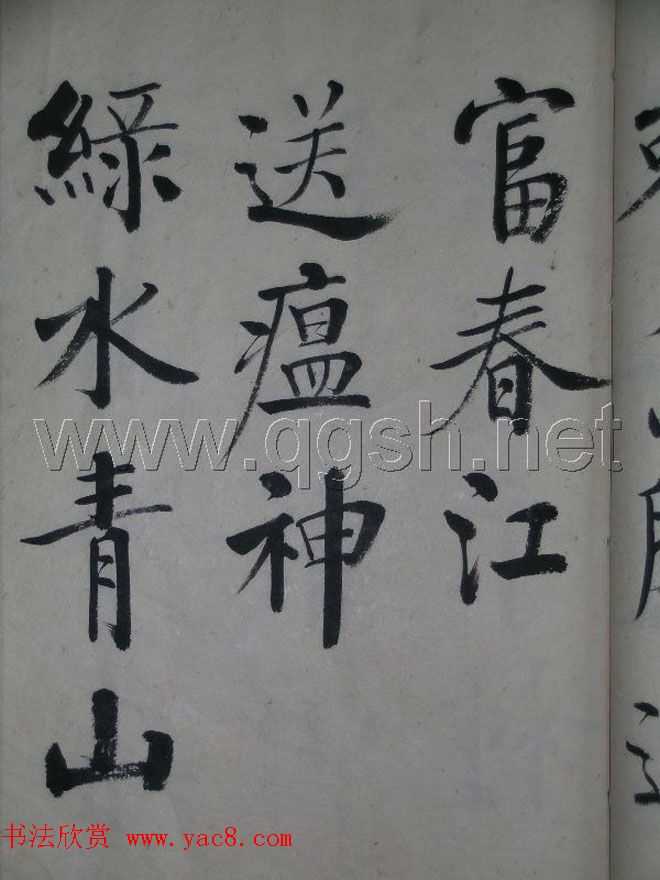 富春江
送瘟神
綠水青山
www.qgsh.net
书法欣赏 www.yac8.com